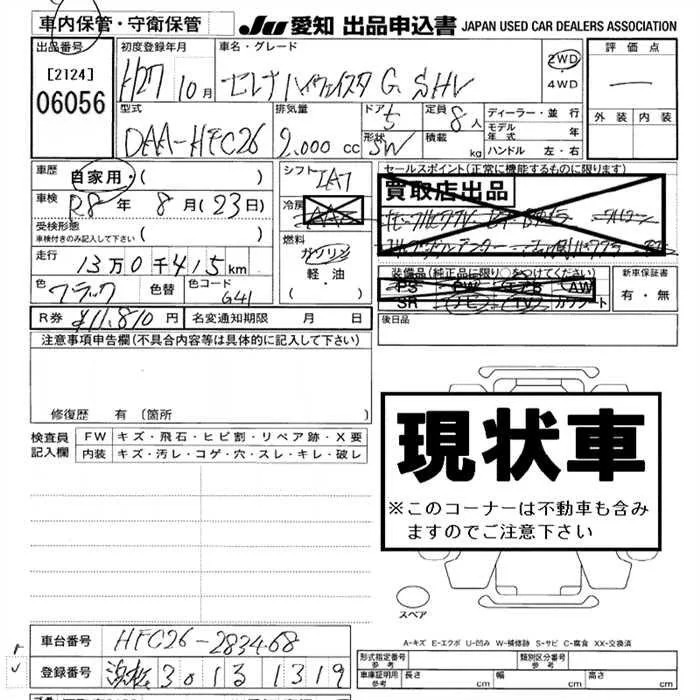 車内保管・守衛保管
JU 愛知 出品申込書 JAPAN USED CAR DEALERS ASSOCIATION
出品番号 [2124] 06056
初度登録年月 H27 10月
車名・グレード セレナ ハイウェイスタ G SHV
2WD・4WD
評価点 —
外装 内装
型式 DAA-HFC26
排気量 2,000 cc
ドア 5 形状 SW
定員 8人 積載 kg
ディーラー・並行
モデル年式 年
ハンドル 左・右
車歴 自家用・( )
車検 R8年 8月(23日)
受検形態 車検付きのみ記入して下さい ( )
走行 13万0千415km
色 ブラック 色替 色コード G41
シフト IAT
冷房 AAC
燃料 ガソリン 軽油 ( ・ )
セールスポイント(正常に機能するものに限ります)
買取店出品
装備品(純正品に限り○をつけてください)
PS PW エアB AW
SR ナビ TV カワシート
新車保証書 有・無
R券 ¥11,810円 名変通知期限 月 日
後日品
注意事項申告欄(不具合内容等は具体的に記入して下さい)
修復歴 有〔箇所 〕
検査員記入欄
FW キズ・飛石・ヒビ割・リペア跡・X要
内装 キズ・汚レ・コゲ・穴・スレ・キレ・破レ
現状車
※このコーナーは不動車も含み
ますのでご注意下さい
スペア
A-キズ E-エクボ U-凹み W-補修跡 S-サビ C-腐食 XX-交換済
車台番号 HFC26-283468
登録番号 浜松 301 ら 1319
形式指定番号 参考 類別区分番号 参考
車庫証明用 参考 長さ cm 幅 cm 高さ cm